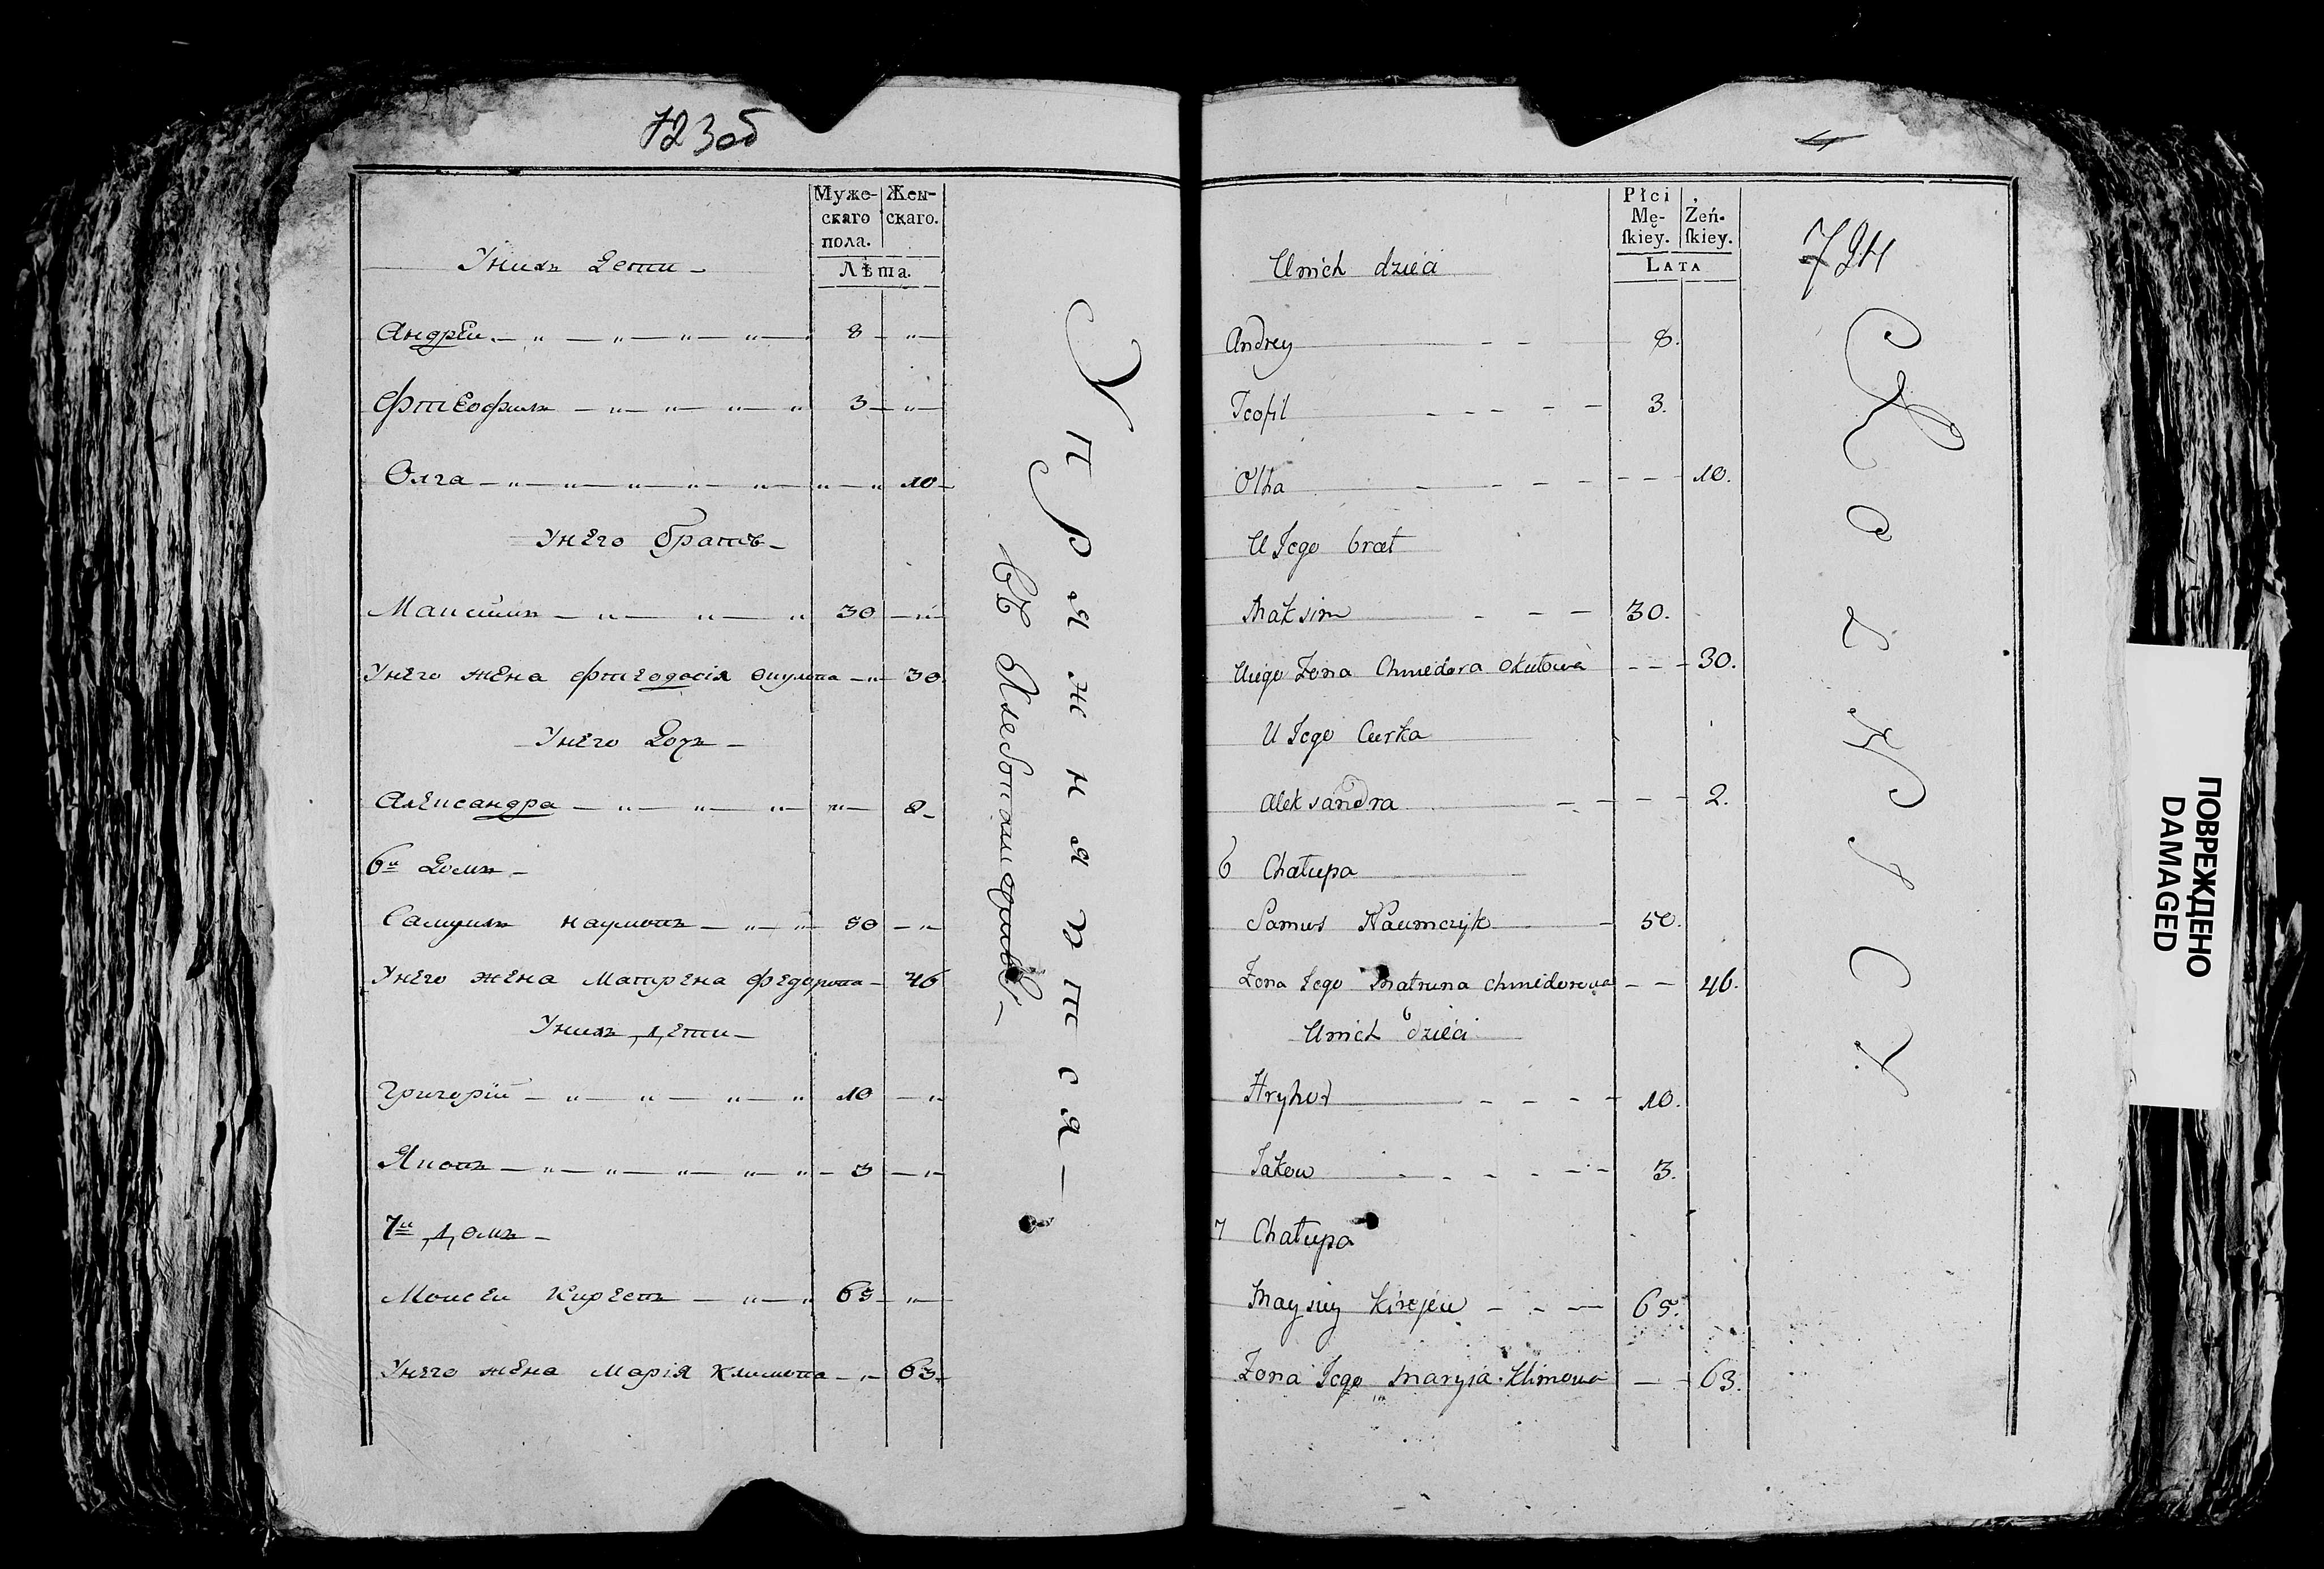 723об
Муже- Жен-
скаго скаго.
пола.
Лѣта.
Унихъ Дети
Андрей 8
Фтеофилъ 3
Олга 10
Унего братъ
Максимъ 30
Унего жена Фтеодосія Окулова 30
Унего Доч
Александра 2
6й Домъ
Самуилъ Наумовъ 50
Унего жена Матрена Федорова 46
Унихъ дети
Григорій 10
Яковъ 3
7й домъ
Моисеи Киреевъ 65
Унего жена Марія Климова 63
Упражняются
въ Хлебопашестве
4
724
Płci
Mę- Żeń-
skiey. skiey.
LATA
Unich dzieci
Andrey 8.
Teofil 3.
Olha 10.
U Jego brat
Maksim 30.
Uiego Żona Chwedora Okułowa 30.
U Jego Curka
Aleksandra 2.
6 Chałupa
Samus Naumczyk 50.
Żona Jego Matruna Chwedorowa 46.
Unich dzieci
Hryhor 10.
Jakow 3.
7 Chałupa
Maysiey Kirejew 65.
Żona Jego Marysia Klimowa 63.
ПОВРЕЖДЕНО
DAMAGED